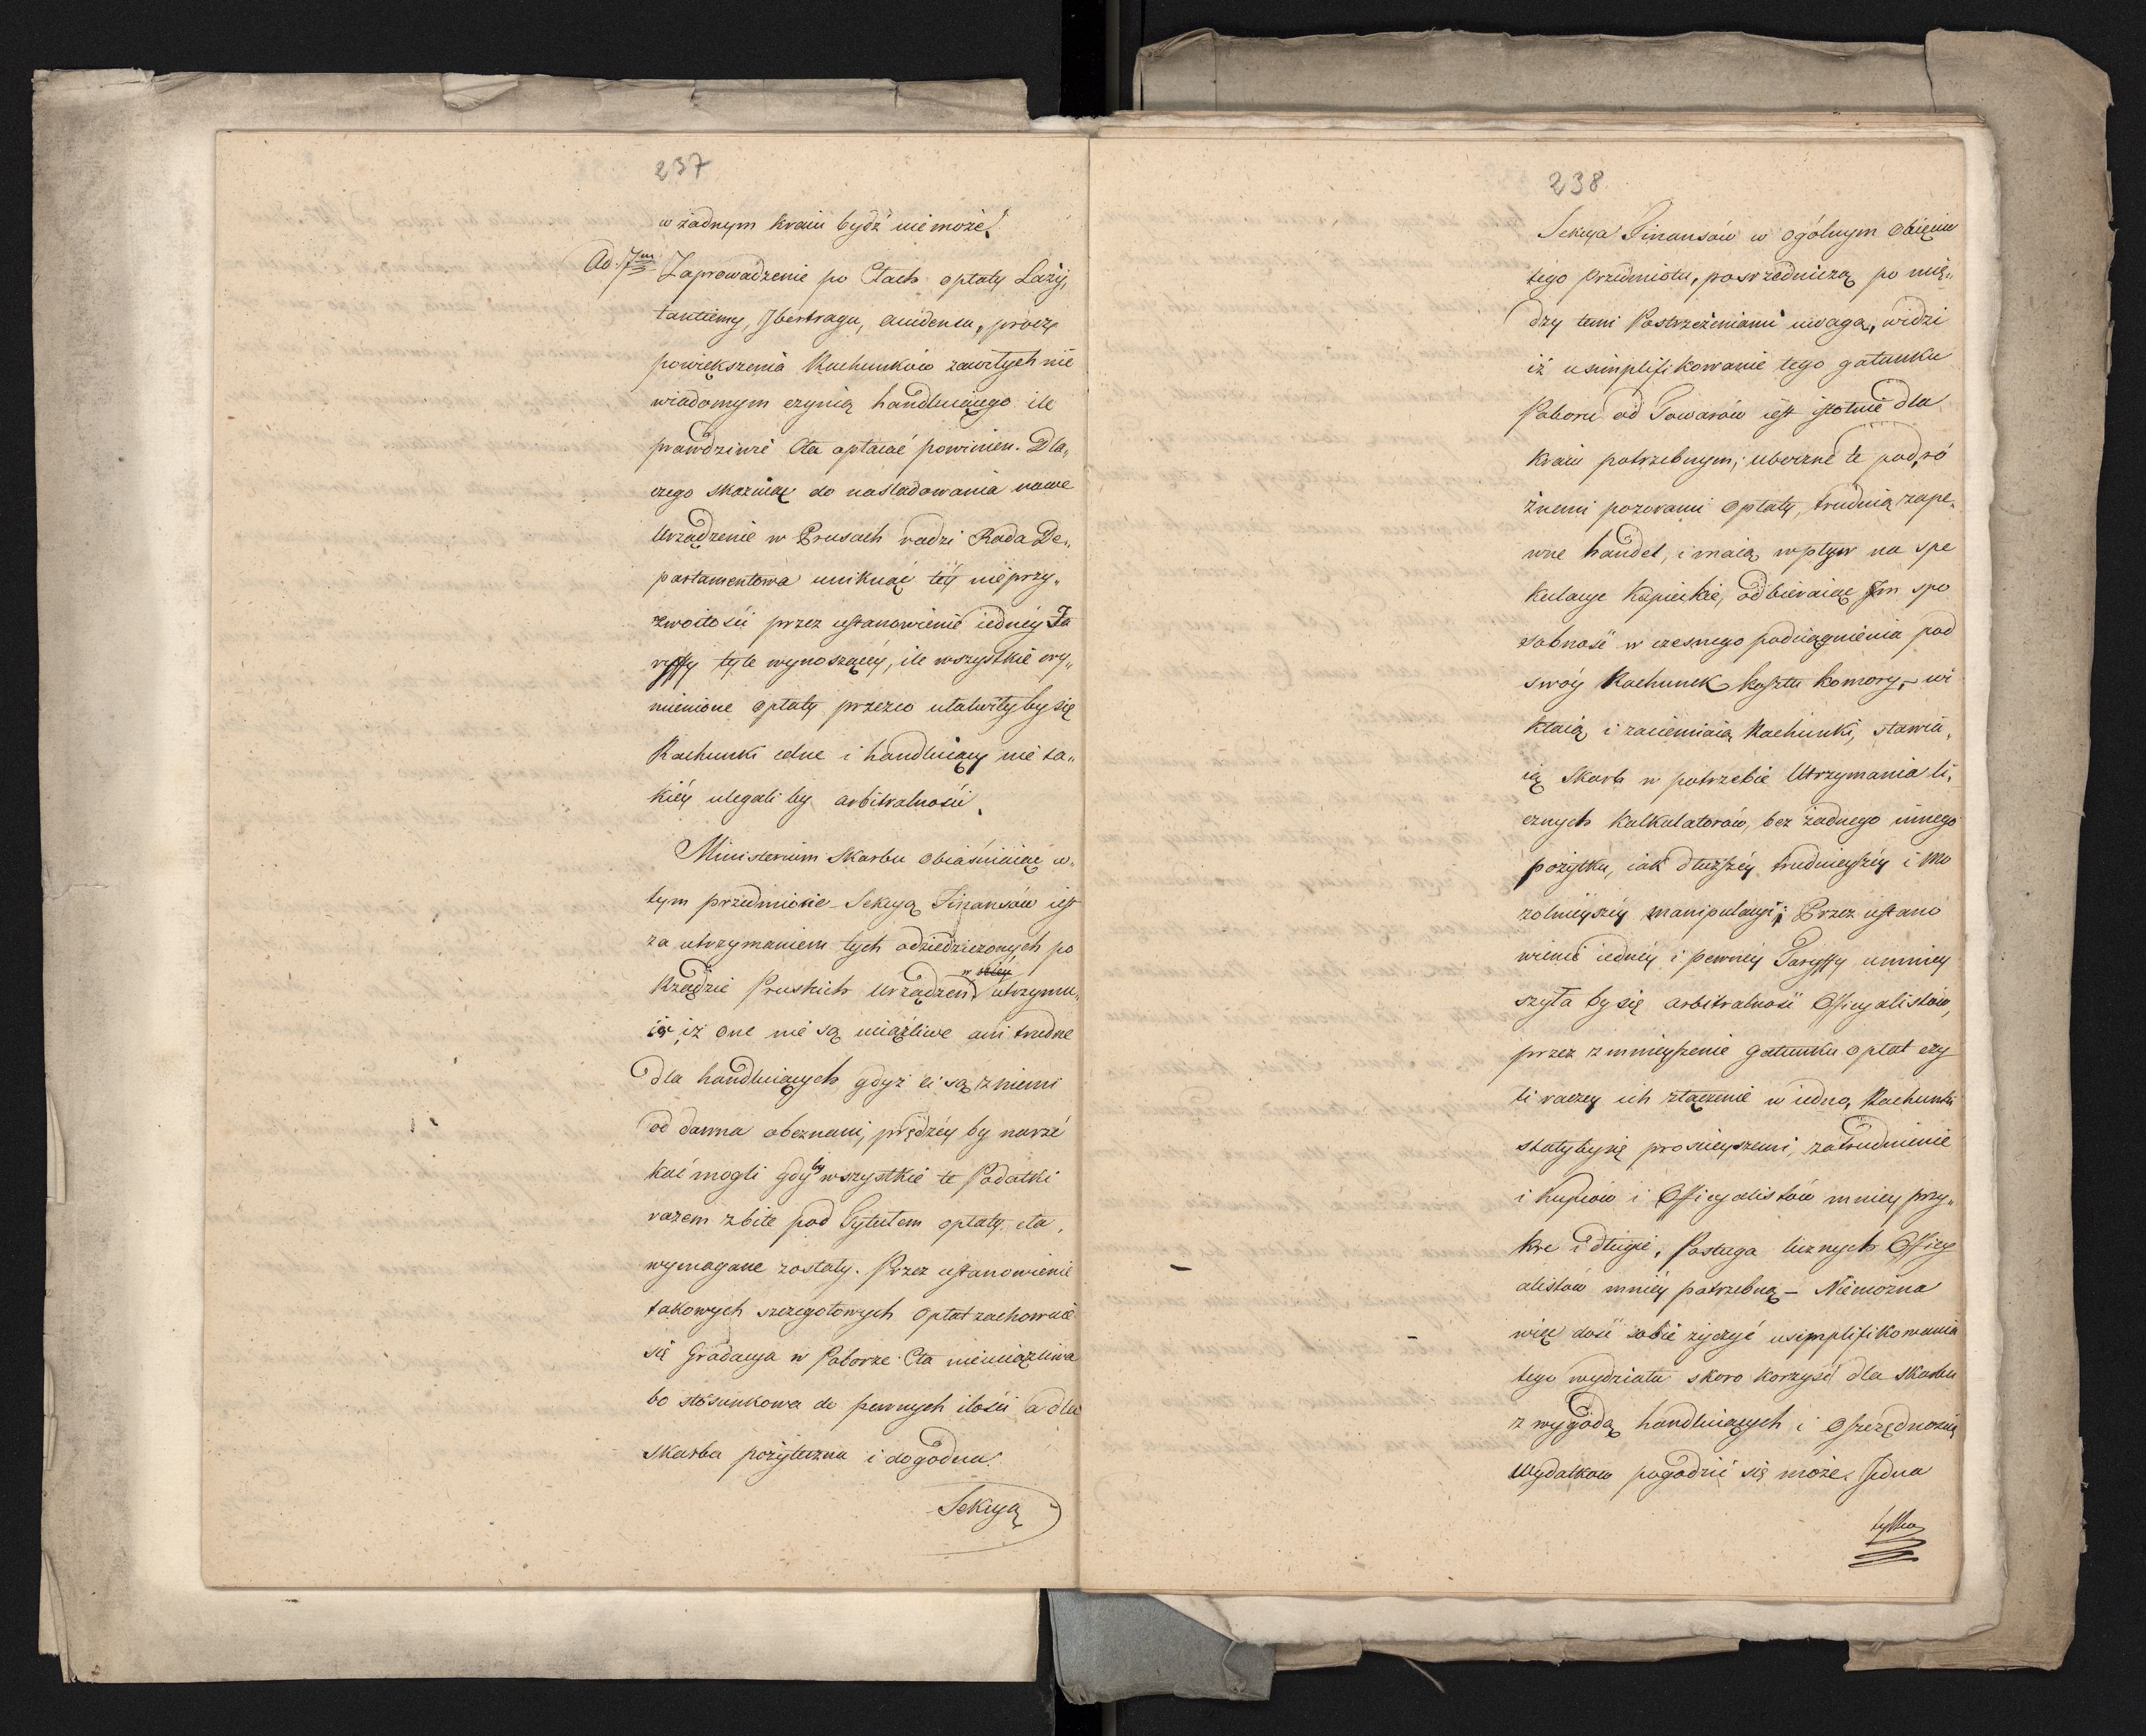 237
w żadnym kraiu bydź nie może.
Ad 7m Zaprowadzenie po Cłach opłaty Laży,
tantiemy, Ibertragu, accidensu, procz
powiększenia Rachunków zawiłych nie
wiadomym czynią handluiącego ile
prawdziwie Cła opłacać powinien. Dla„
czego skazuiąc do naśladowania nowe
Urządzenie w Prusach radzi Rada De„
partamentowa uniknąć téy nieprzy„
zwoitości przez ustanowienie iednéy Ta
ryffy tyle wynoszącéy, ile wszystkie wy„
mienione opłaty przezco ułatwiłyby się
Rachunki celne i handluiący nie ta„
kiéy ulegali by arbitralności.
Ministerium Skarbu obiaśniaiąc w
tym przedmiocie Sekcyą Finansów iest
za utrzymaniem tych odziedziczonych po
Rządzie Pruskich Urządzeń w utrzymu„
ią, iż one nie są uciążliwe ani trudne
dla handluiących gdyż ci są z niemi
od dawna obeznani, prędzéy by narze
kać mogli gdyby wszystkie te Podatki
razem zbite pod Tytułem opłaty cła,
wymagane zostały. Przez ustanowienie
takowych szczegołowych Opłat zachowuie
się Gradacya w Poborze Cła nieuciążliwa
bo stosunkowa do pewnych ilości a dla
Skarbu pożyteczna i dogodna.
Sekcya
238
Sekcya Finansów w ogólnym obięciu
tego przedmiotu, pośrzedniczą po mię„
dzy temi Postrzeżeniami uwagą, widzi
iż usimplifikowanie tego gatunku
Poboru od Towarów iest istotnie dla
kraiu potrzebnym; uboczne te pod ró
żnemi pozorami Opłaty, trudnią zape„
wne handel, i maią wpływ na spe
kulacye kupieckie, odbieraiąc Im spo
sobność wczesnego podciągnienia pod
swóy Rachunek kosztu komory, wi
kłaią i zaciemniaią Rachunki, stawia„
ią Skarb w potrzebie Utrzymania li„
cznych kalkulatorów, bez żadnego innego
pożytku, iak dłuższéy trudnieyszéy i mo
zolnieyszéy manipulacyi; Przez ustano
wienie iednéy i pewnéy Taryffy umniey
szyła by się arbitralność Officyalistów,
przez zmnieyszenie gatunku opłat czy
li raczey ich złączenie w iedno, Rachunki
stałyby się prościeyszemi, zatrudnienie
i Kupców i Officyalistów mniey przy„
kre i długie, Posługa licznych Officy
alistów mniéy potrzebną – Niemożna
więc dość sobie życzyć usimplifikowania
tego wydziału skoro korzyść dla Skarbu
z wygodą handluiących i Oszczędnością
Wydatkow pogodzić się może. Jedna
tylko